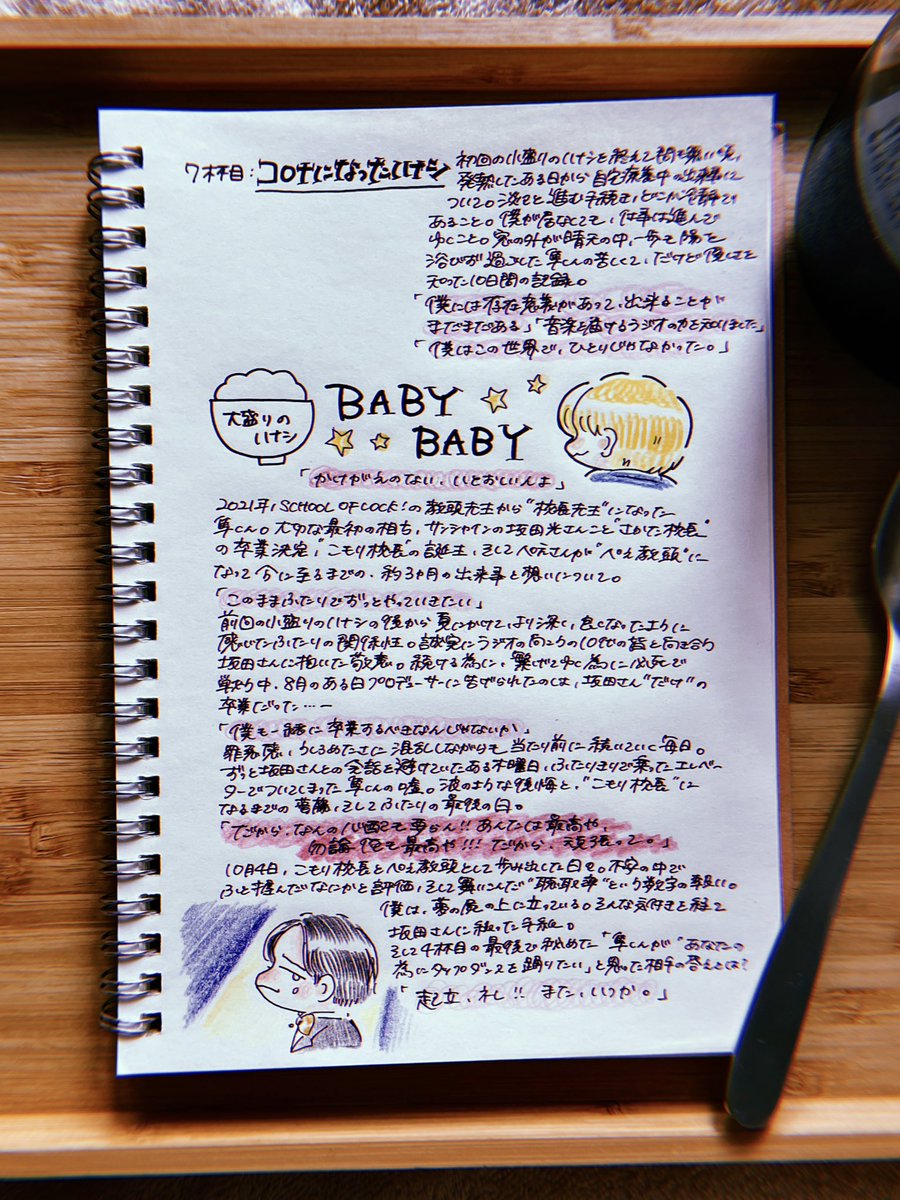 7杯目:コロナになったイナシ
初回の小盛りのイナシを終えて間も無い頃、
発熱したある日から自宅療養中の出来事に
ついて。淡々と進む手続き、どこか冷静で
あること。僕が居なくても、仕事は進んで
ゆくこと。窓の外が晴天の中、一歩も陽を
浴びず過ごした隼くんの苦しくて、だけど優しさを
知った10日間の記録。
「僕には存在意義があって、出来ることが
まだまだある」「音楽を届けるラジオの力を知りました」
「僕はこの世界で、ひとりじゃなかった。」
大盛りの
イナシ
BABY
BABY
「かけがえのない、いとおしいんよ」
2021年、SCHOOL OF LOCK!の教頭先生から"校長先生"になった
隼くん。大切な最初の相方、サンシャインの坂田光さんこと"さかた校長"
の卒業決定、"こもり校長"の誕生、そしてぺえさんが"ぺえ教頭"に
なって今に至るまでの、約3ヵ月の出来事と想いについて。
「このままふたりでずっとやっていきたい」
前回の小盛りのイナシの後から夏にかけて、より深く、良くなったように
感じたふたりの関係性。誠実にラジオの向こうの10代の皆と向き合う
坂田さんに抱いた敬意。続ける為に、繋げてゆく為に必死で
戦う中、8月のある日プロデューサーに告げられたのは、坂田さん"だけ"の
卒業だった……
「僕も一緒に卒業するべきなんじゃないか」
罪悪感、うしろめたさに混乱しながらも、当たり前に続いていく毎日。
ずっと坂田さんとの会話を避けていたある木曜日、ふたりきりで乗ったエレベー
ターでついてしまった隼くんの嘘。波のような後悔と、"こもり校長"に
なるまでの葛藤、そしてふたりの最後の日。
「だから、なんの心配も要らん!!あんたは最高や、
勿論俺も最高や!!!だから、頑張って。」
10月4日、こもり校長とぺえ教頭として歩み出した日も。不安の中で
ふと掴んだなにかと評価、そして舞いこんだ"聴取率"という数字の報い。
僕は、夢の屍の上に立っている。そんな気付きを経て
坂田さんに綴った手紙。
そして4杯目の最後で秘めた「隼くんが"あなたの
為にタップダンスを踊りたい」と思った相手の答えとは?
「起立、礼!!また、いつか。」